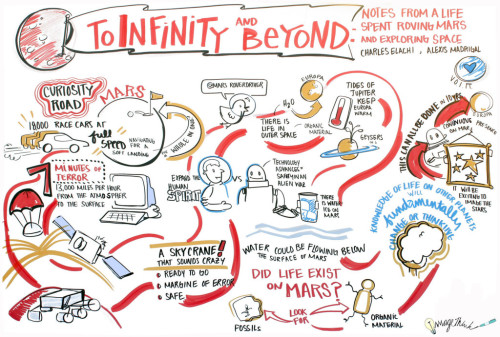 TO INFINITY AND BEYOND
NOTES FROM A LIFE
SPENT ROVING MARS
AND EXPLORING SPACE
CHARLES ELACHI, ALEXIS MADRIGAL
CURIOSITY
ROAD
MARS
18000 RACE CARS AT
full
SPEED
NAVIGATING
FOR A
SOFT LANDING
HOLE IN ONE
7 MINUTES OF
TERROR
13,000 MILES PER HOUR
FROM THE ATMOSPHERE
TO THE SURFACE
@MARS ROVERDRIVER
EXPAND THE
HUMAN
SPIRIT
VS
THERE IS
LIFE IN
OUTER SPACE
TECHNOLOGY
ADVANCES
EUROPA
H2O
ORGANIC
MATERIAL
TIDES OF
JUPITER
KEEP
EUROPA
WARM
GEYSERS
THERE
IS WATER
ICE ON
MARS
A SKYCRANE!
THAT SOUNDS CRAZY
READY TO GO
MARGINE OF ERROR
SAFE
WATER COULD BE FLOWING BELOW
THE SURFACE OF MARS
DID LIFE EXIST
ON MARS?
LOOK
FOR
FOSSILS
ORGANIC
MATERIAL
VOTE
THIS CAN ALL BE DONE IN 10 YRS
CONTINUOUS
ON MARS
EUROPA
IT WILL BE
EXCITING TO
IMAGE THE
STARS
KNOWLEDGE OF LIFE ON OTHER PLANETS
WILL
fundamentally
CHANGE OUR THINKING
ImageThink